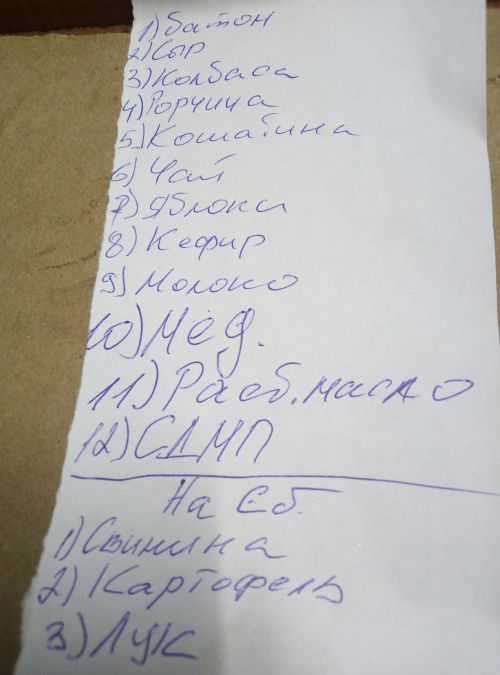 1) Батон
2) Сыр
3) Колбаса
4) Горчица
5) Кошатина
6) Чай
7) Яблоки
8) Кефир
9) Молоко
10) Мёд.
11) Раст. масло
12) СДМП
На Сб.
1) Свинина
2) Картофель
3) Лук